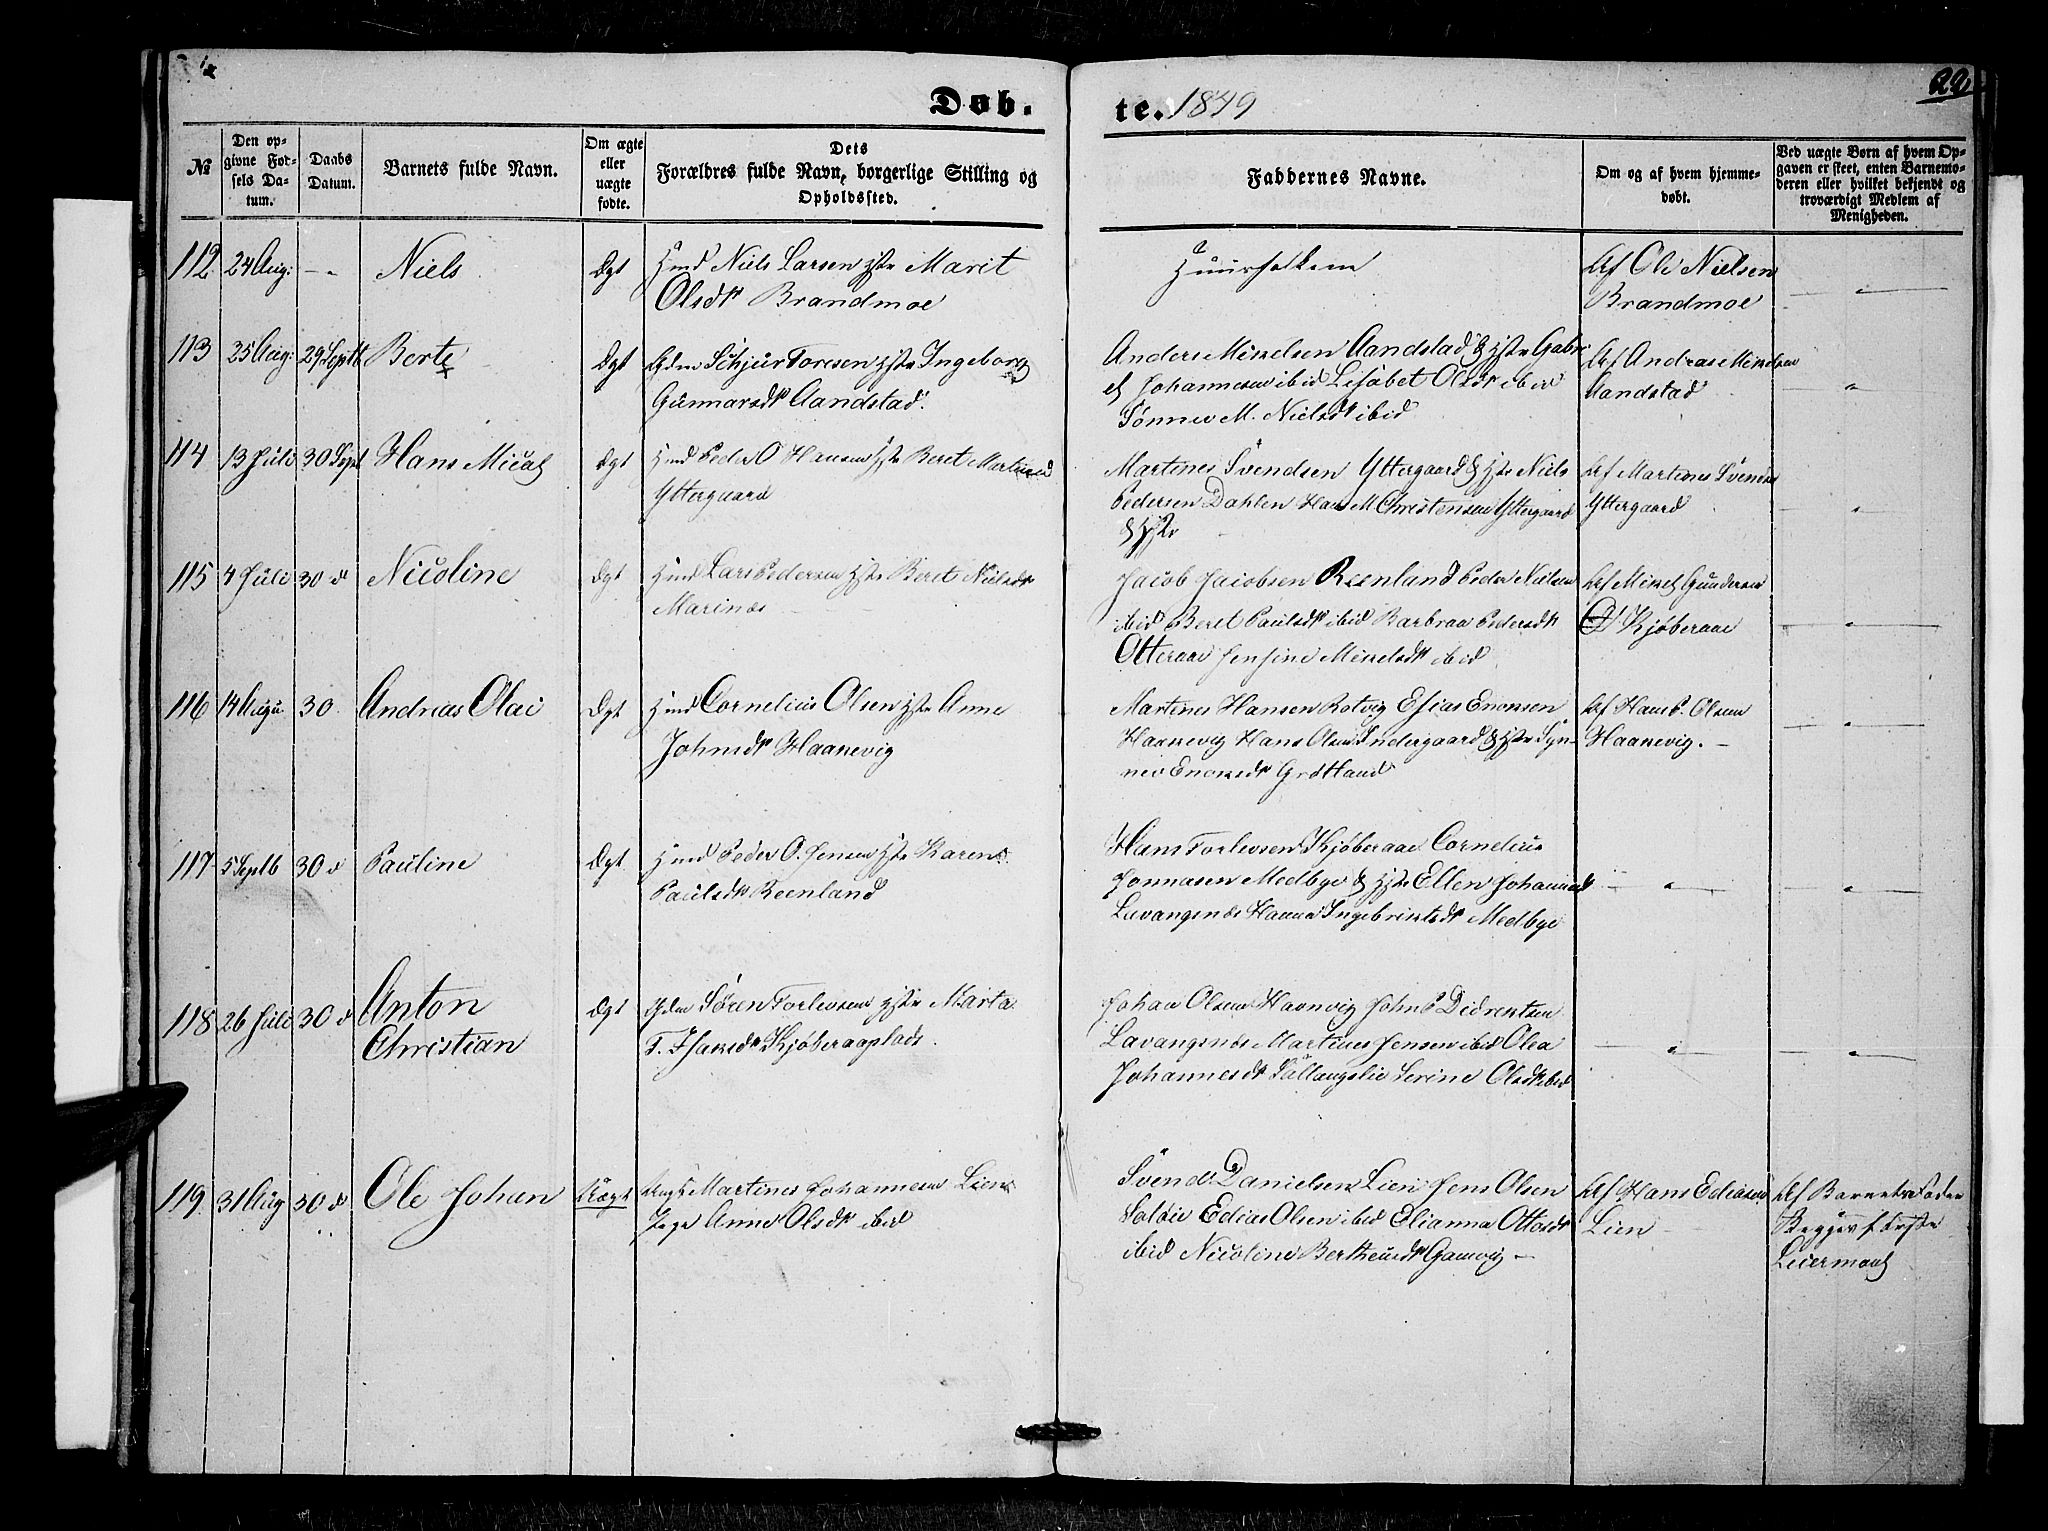 Døb.
te. 1849
22
№
Den op-
givne Fød-
sels Da-
tum.
Daabs
Datum.
Barnets fulde Navn.
Om ægte
eller
uægte
fødte.
Dets
Forældres fulde Navn, borgerlige Stilling og
Opholdssted.
Faddernes Navne.
Om og af hvem hjemme-
døbt.
Ved uægte Børn af hvem Op-
gaven er skeet, enten Barnemo-
deren eller hvilket bekjendt og
troværdigt Medlem af
Menigheden.
112 24 Aug: Niels Niels Larsen Marit
Olsdt Brandmoe
Af Ole Nielsen
Brandmoe
113 25 Aug: 29 Septb Berte Schjur Toresen Ingeborg
Gunnarsdt Aandstad.
Anders Mikelsen Aandstad & Gabri
el Johannesen ibid Lisabet Olsdt ibid
Sønnev M. Nielsdt ibid
Af Andreas Mikelsen
Aandstad
114 13 Juli 30 Sept Hans Micael Peder O Hansen Beret
Yttergaard
Martines Svendsen Yttergaard & Niels
Pedersen Dahlen Hans M Christensen Yttergaard
&
Af Martines Svendsen
Yttergaard
115 4 Juli 30 d Nicoline Lars Pedersen Beret Nielsdt
Marinæs
Jacob Jacobsen Reenland Peder Nielsen
ibid Beret Paulsdt ibid Barbraa Pedersdt
Otteraae Jensine Mikelsdt ibid
Af Mikel Gundersen
Kjøberaae
116 14 Augu 30 Andreas Olai Cornelius Olsen Anne
Johnsdt Haanevig
Martines Hansen Rotvig Esias Enoksen
Haanevig Hans Olsen Indergaard & Syn-
nev Enoksdt Grøtland
Af Hans P. Olsen
Haanevig.
117 5 Septb 30 d Pauline Peder O. Jensen Karen
Paulsdt Reenland
Hans Torlevsen Kjøberaae Cornelius
Jonnasen Medbye & Ellen Johannesdt
Lavangsnæs Hanna Ingebriktsdt Medbye
118 26 Juli 30 d Anton
Christian
Søren Torlevsen Marta
T. Isaksdt Kjøberaaplads.
Johan Olsen Haanvig John P Didrentsen
Lavangsnæs Martines Jensen ibid Olea
Johannesdt Serine Olsdt ibid
119 31 Aug 30 d Ole Johan Uægt Martines Johannesen Lien
Pige Anne Olsdt ibid
Svend Danielsen Lien Jens Olsen
Edias Olsen ibid Elianna Ottosdt
ibid Nicoline Gamvig
Af Hans Ediasen
Lien
Af Barnets Fader
Begges første
Leiermaal